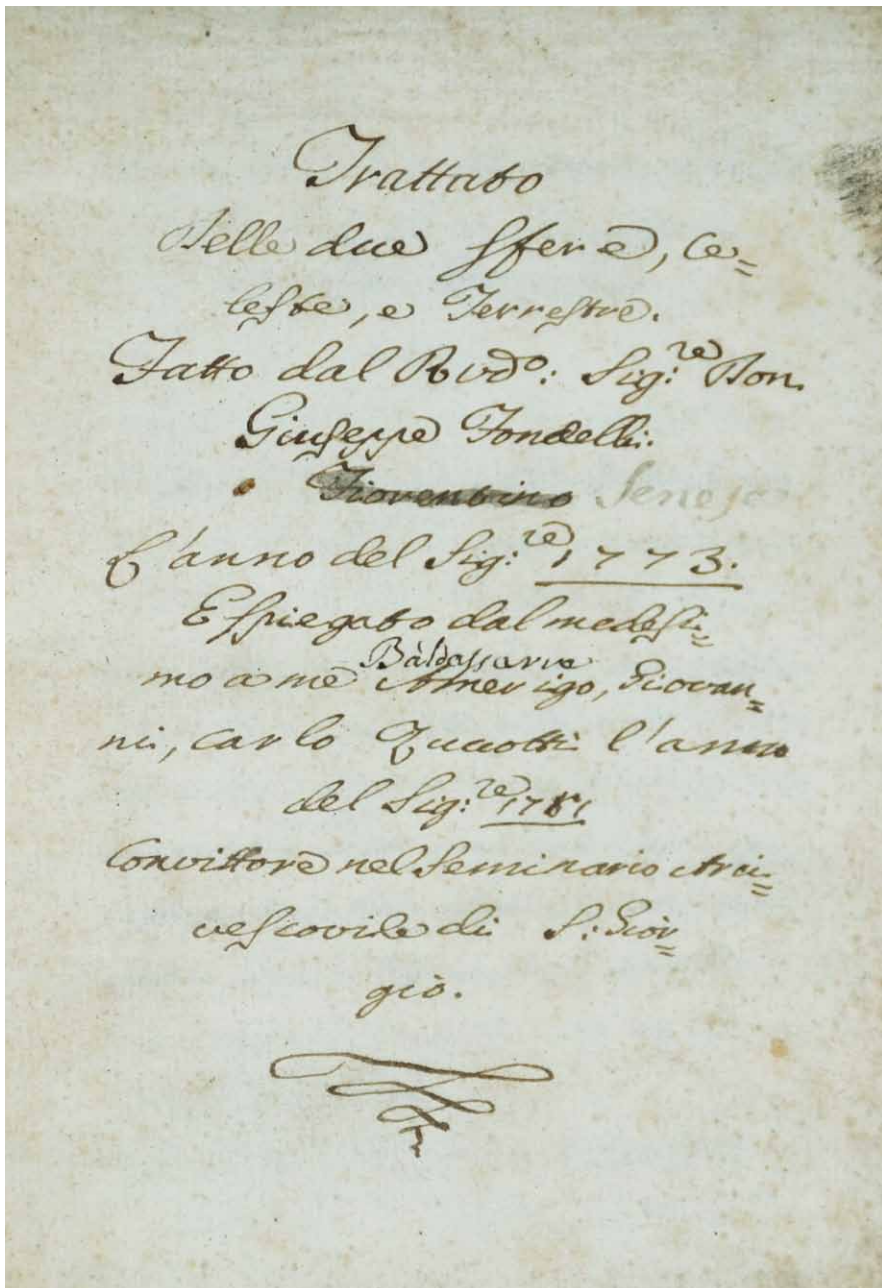 Trattato
Delle due sfere, Ce=
leste, e Terrestre.
Fatto dal Rvdo: Sig:re Don
Giuseppe Fondelli:
Fiorentino Senese
L'anno del Sig:re 1773.
E spiegato dal medesi=
Baldassarre
mo a me Amerigo, Giovan=
ni, Carlo Zuccotti l'anno
del Sig:re 1781
Convittore nel Seminario Arci=
vescovile di S: Gior=
gio.